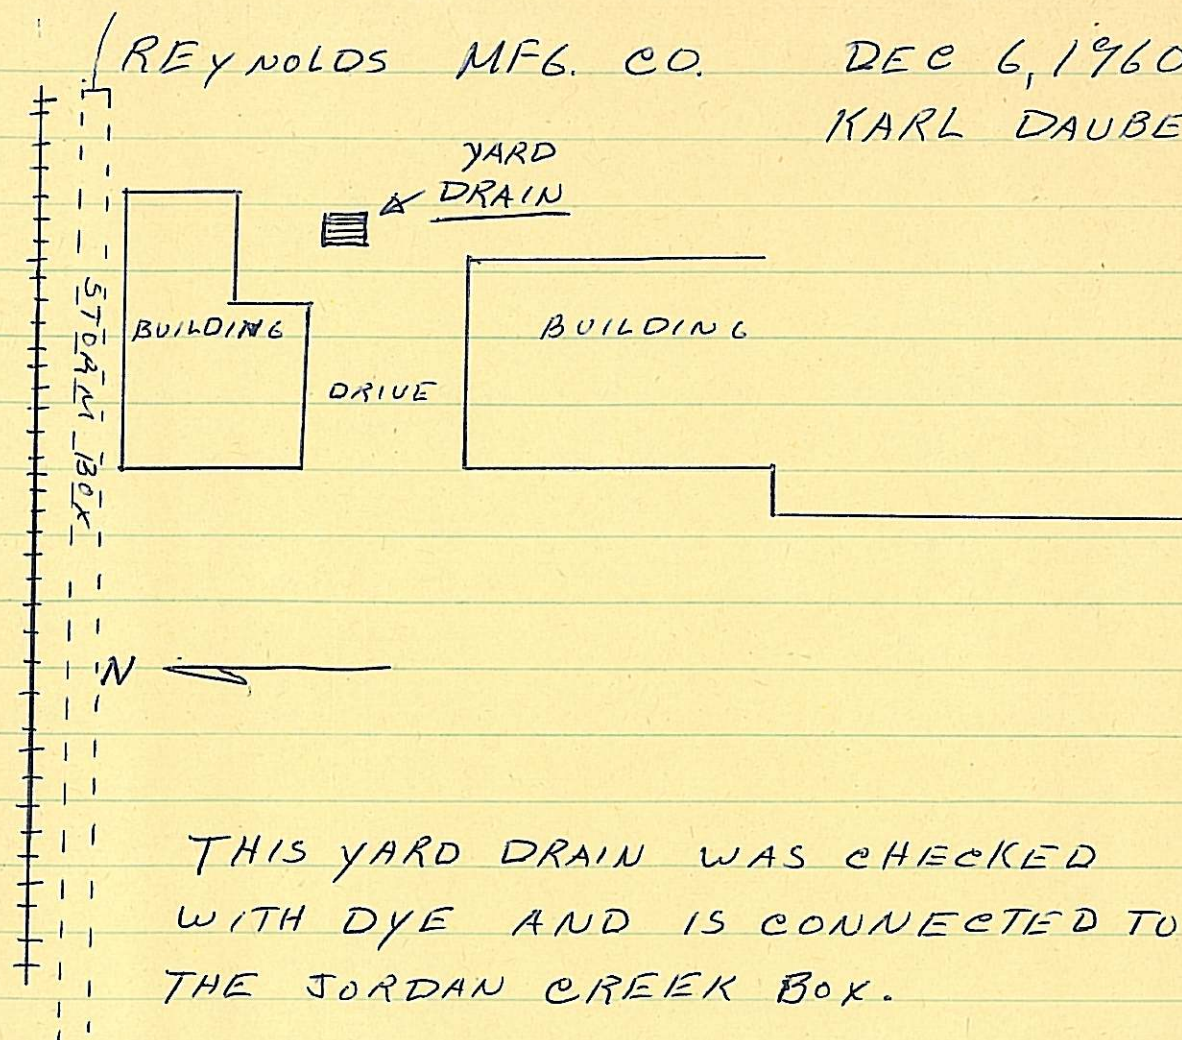 REYNOLDS MFG. CO. DEC 6, 1960
KARL DAUBE
YARD
DRAIN
BUILDING
BUILDING
DRIVE
STORM BOX
N
THIS YARD DRAIN WAS CHECKED
WITH DYE AND IS CONNECTED TO
THE JORDAN CREEK BOX.